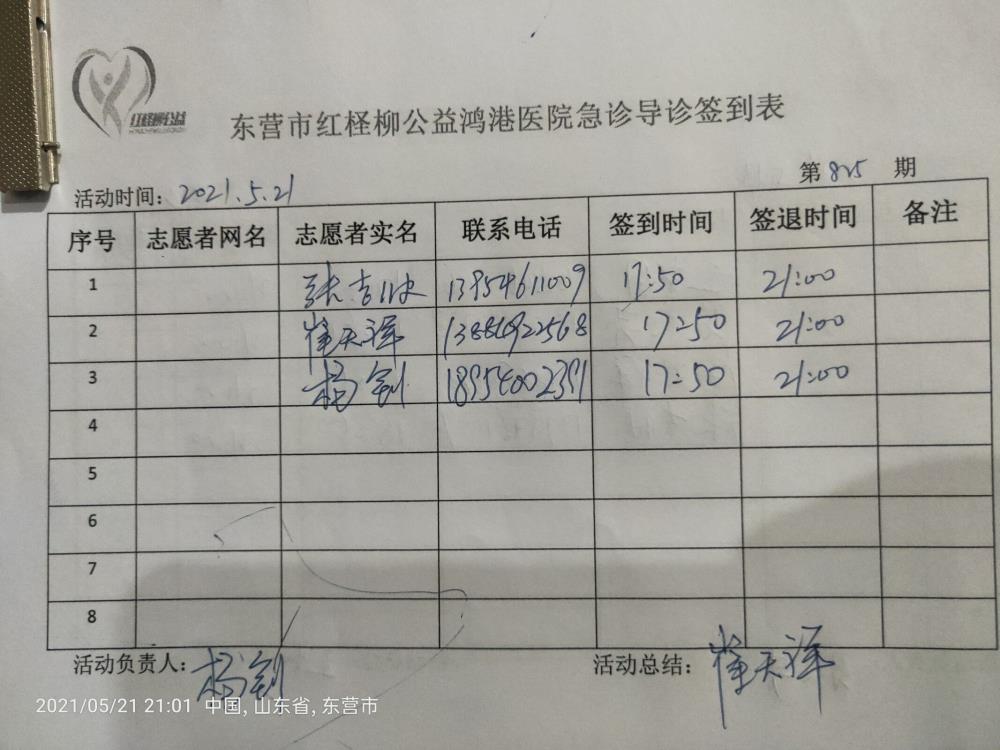 红柽柳公益
东营市红柽柳公益鸿港医院急诊导诊签到表
第825期
活动时间：2021.5.21
序号 志愿者网名 志愿者实名 联系电话 签到时间 签退时间 备注
1 张 13954611009 17:50 21:00
2 崔天祥 13884922568 17:50 21:00
3 杨剑 18954002391 17:50 21:00
4
5
6
7
8
活动负责人：杨剑 活动总结：崔天祥
2021/05/21 21:01 中国, 山东省, 东营市